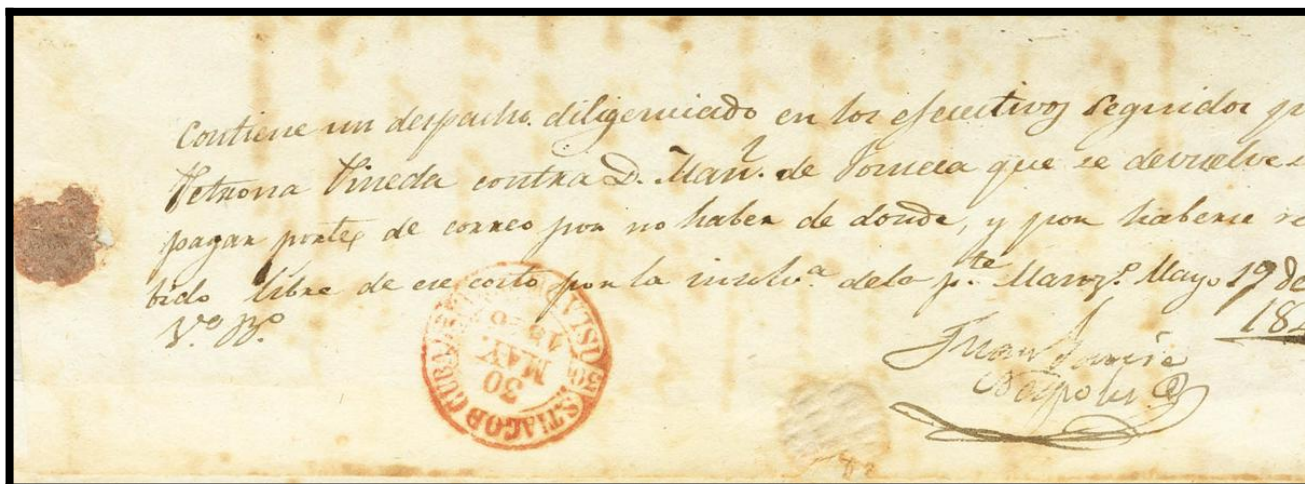 Contiene un despacho diligenciado en los efecutivos seguidos
Petrona Pineda contra D. Man.l de Fonseca que se devuelve
pagar portes de correo por no haber de donde, y por haberse re
bido libre de ese costo por la insolv.a dela p.te Marz.o Mayo 19 de
V.o B.o
18
Juan
SANTIAGO D CUBA
30
MAY.